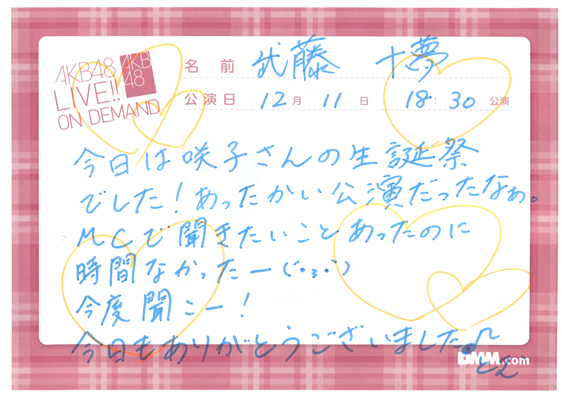 AKB48
LIVE!!
ON DEMAND
AKB
48
名前 武藤 十夢
公演日 12月 11日 18:30公演
今日は咲子さんの生誕祭
でした！あったかい公演だったなぁ。
MCで聞きたいことあったのに
時間なかったー(´・3・`)
今度聞こー！
今日もありがとうございました♪
とむ
DMM.com